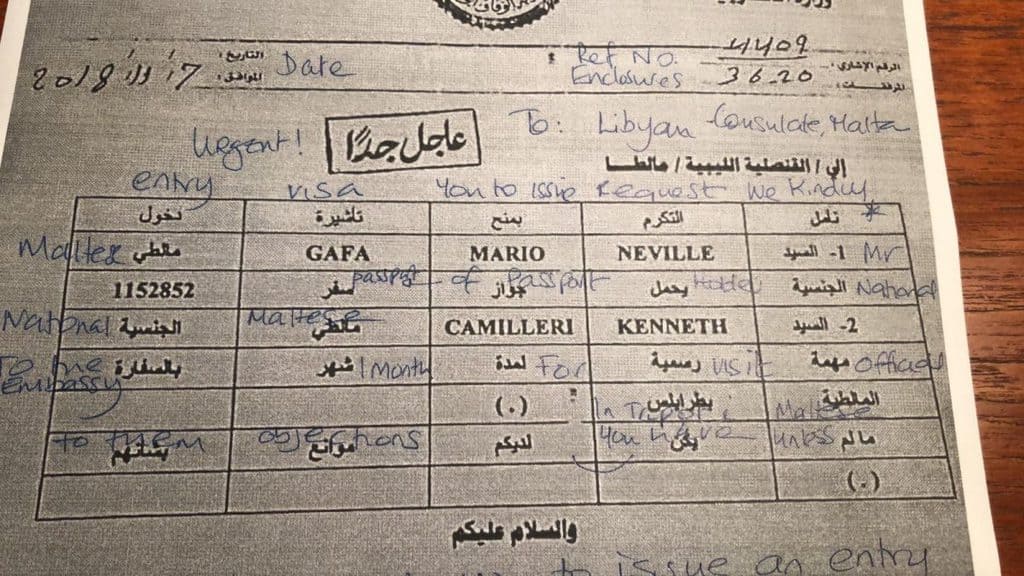 4409 Ref No. الرقم الإشاري:
التاريخ: Date
36-20 Enclosures المرفقات:
الموافق: 17 2018
To: Libyan Consulate, Malta
Urgent! عاجل جدًا
إلي/ القنصلية الليبية / مالطا
entry visa you to issue Request We Kindly
نأمل * التكرم بمنح تأشيرة دخول
1- السيد Mr NEVILLE MARIO GAFA مالطي Maltese
الجنسية National يحمل Holder جواز of Passport سفر passport 1152852
2- السيد KENNETH CAMILLERI مالطي Maltese الجنسية National
مهمة Official رسمية visit لمدة For شهر 1 Month بالسفارة To the Embassy
المالطية Maltese بطرابلس In Tripoli (.)
مالم unless يكن you have لديكم موانع objections بشأنهم to them
(.)
والسلام عليكم
to issue an entry